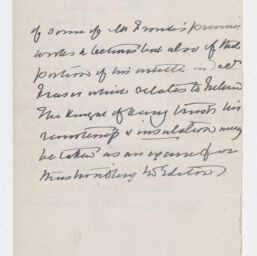 of some of Mr Froude's previous
works & lectures but also of that
portion of his article in
Fraser which relates to Ireland
The Kingdom of Kerry trusts his
remoteness & insulation may
be taken as an excuse for
thus troubling the Editor